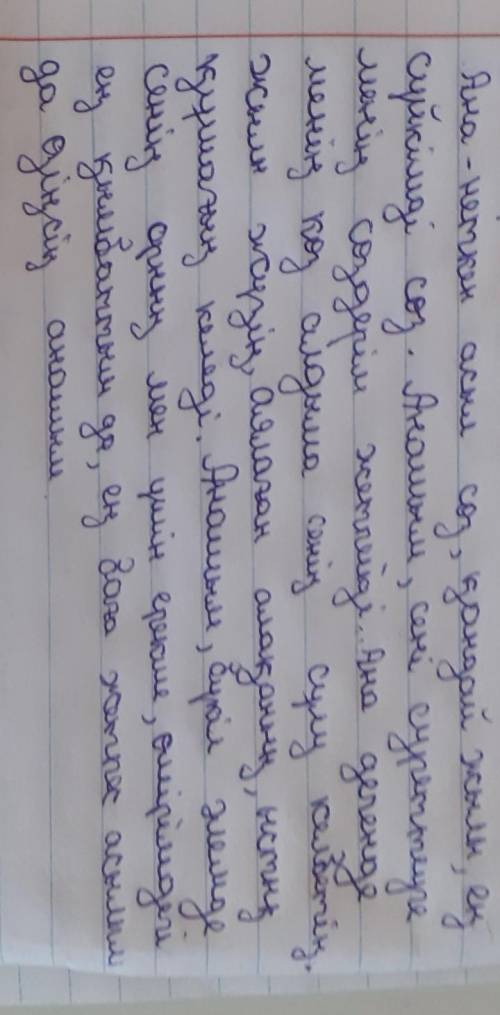 Ана - неткен асыл сөз, қандай жылы, ең
сүйкімді сөз. Анашым, сені суреттеуге
менің сөздерім жетпейді. Ана дегенде
менің көз алдыма сенің сұлу келбетің,
жылы жүзің, аялаған алақаның, ыстық
құшағың келеді. Анашым, бүкіл әлемде
сенің орның мен үшін ерекше, өмірімдегі
ең қымбаттым да, ең баға жетпес асылым
да өзіңсің анашым.